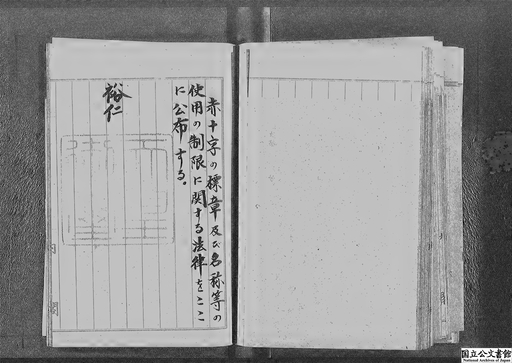 赤十字の標章及び名称等の
使用の制限に関する法律をここ
に公布する。
裕仁
国立公文書館
National Archives of Japan